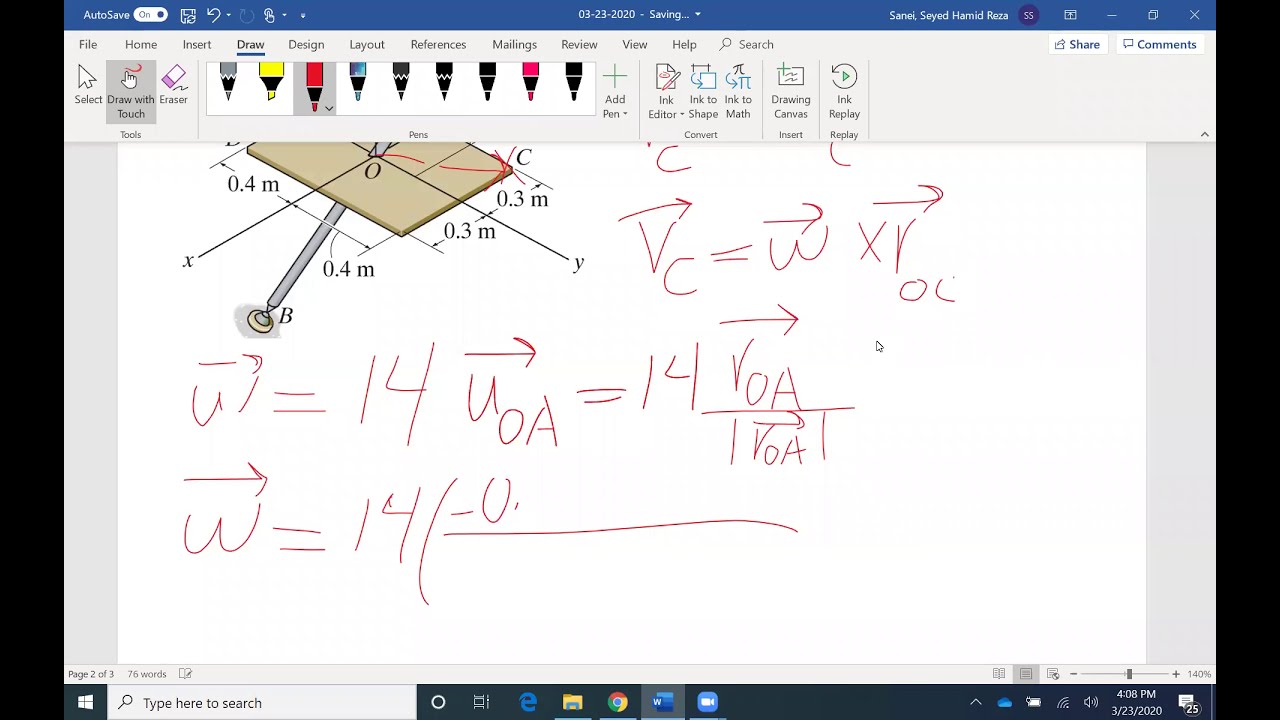 AutoSave On 03-23-2020 - Saving... Sanei, Seyed Hamid Reza SS
File Home Insert Draw Design Layout References Mailings Review View Help Search Share Comments
Select Draw with Touch Eraser Add Pen Ink Editor Ink to Shape Ink to Math Drawing Canvas Ink Replay
Tools Pens Convert Insert Replay
O C
0.4 m 0.3 m
0.3 m
x 0.4 m y
B
V⃗C = w⃗ × r⃗OC
w⃗ = 14 u⃗OA = 14 r⃗OA / |r⃗OA|
w⃗ = 14 ( -0.
Page 2 of 3 76 words 140%
Type here to search 4:08 PM
3/23/2020 25